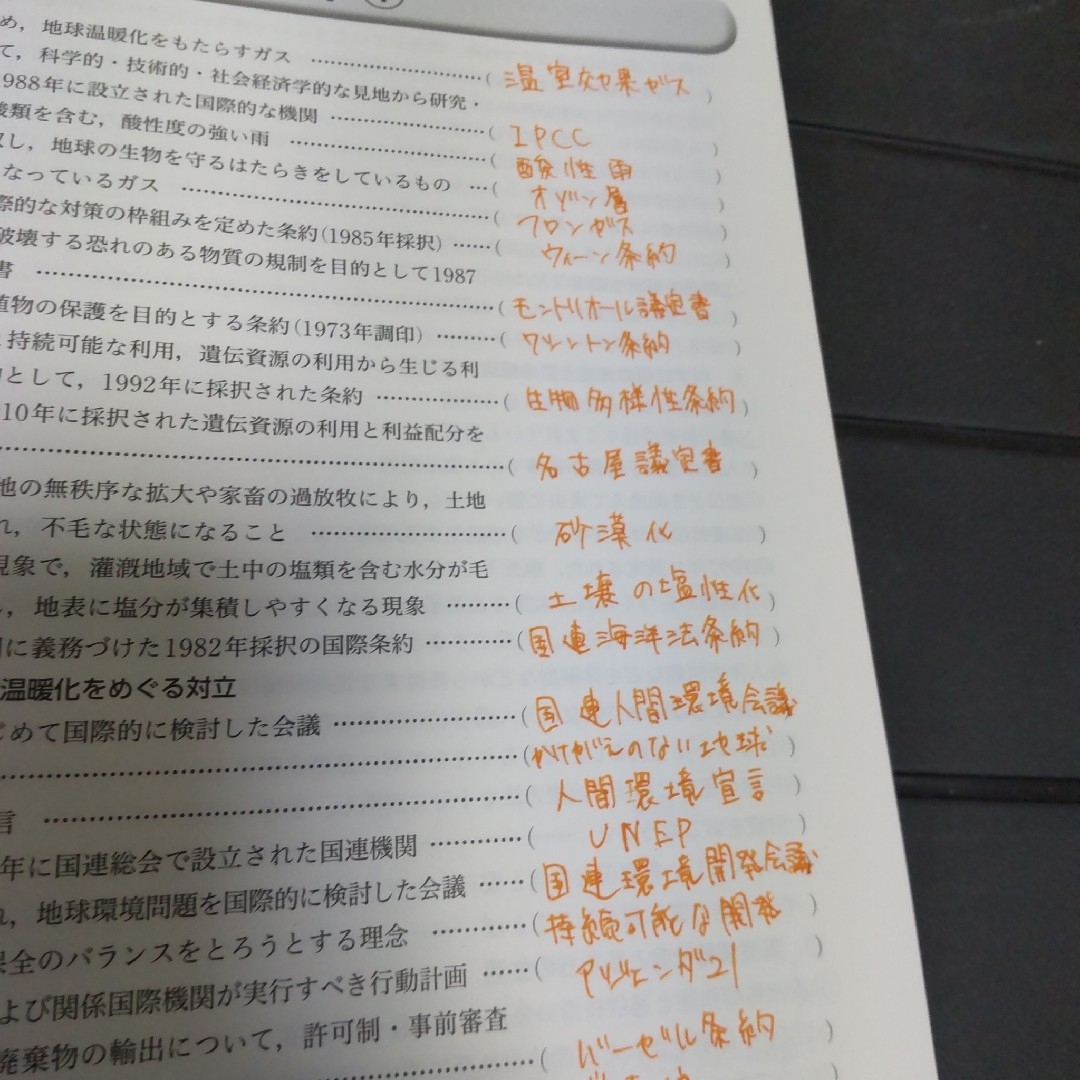 め，地球温暖化をもたらすガス ……………………( 温室効果ガス )
て，科学的・技術的・社会経済学的な見地から研究・
1988年に設立された国際的な機関 ……………………( IPCC )
酸類を含む，酸性度の強い雨 ……………………( 酸性雨 )
収し，地球の生物を守るはたらきをしているもの …( オゾン層 )
なっているガス ……………………( フロンガス )
際的な対策の枠組みを定めた条約(1985年採択) ……( ウィーン条約 )
破壊する恐れのある物質の規制を目的として1987
書 ……………………( モントリオール議定書 )
植物の保護を目的とする条約(1973年調印) ………( ワシントン条約 )
持続可能な利用，遺伝資源の利用から生じる利
的として，1992年に採択された条約 ……………( 生物多様性条約 )
10年に採択された遺伝資源の利用と利益配分を
……………………( 名古屋議定書 )
地の無秩序な拡大や家畜の過放牧により，土地
れ，不毛な状態になること ……………………( 砂漠化 )
現象で，灌漑地域で土中の塩類を含む水分が毛
し，地表に塩分が集積しやすくなる現象 ………( 土壌の塩性化 )
に義務づけた1982年採択の国際条約 …………( 国連海洋法条約 )
温暖化をめぐる対立
じめて国際的に検討した会議 ……………………( 国連人間環境会議
……………………( かけがえのない地球 )
言 ……………………( 人間環境宣言 )
年に国連総会で設立された国連機関 …………( UNEP )
れ，地球環境問題を国際的に検討した会議 ……( 国連環境開発会議
保全のバランスをとろうとする理念 …………( 持続可能な開発 )
よび関係国際機関が実行すべき行動計画 ……( アジェンダ21 )
廃棄物の輸出について，許可制・事前審査
……………………( バーゼル条約 )